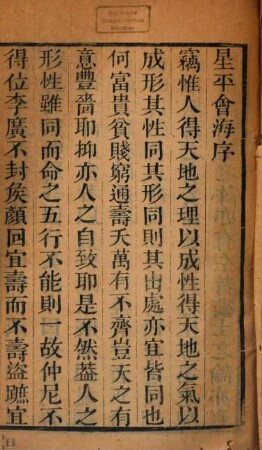 星平會海序
竊惟人得天地之理以成性得天地之氣以
成形其性同其形同則其出處亦宜皆同也
何富貴貧賤窮通壽夭萬有不齊豈天之有
意豐嗇耶抑亦人之自致耶是不然葢人之
形性雖同而命之五行不能則一故仲尼不
得位李廣不封侯顏回宜壽而不壽盜蹠宜